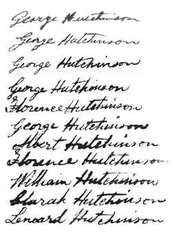 George Hutchinson
George Hutchinson
George Hutchinson
George Hutchinson
Florence Hutchinson
George Hutchinson
Albert Hutchinson
Florence Hutchinson
William Hutchinson
Sarah Hutchinson
Leneard Hutchinson